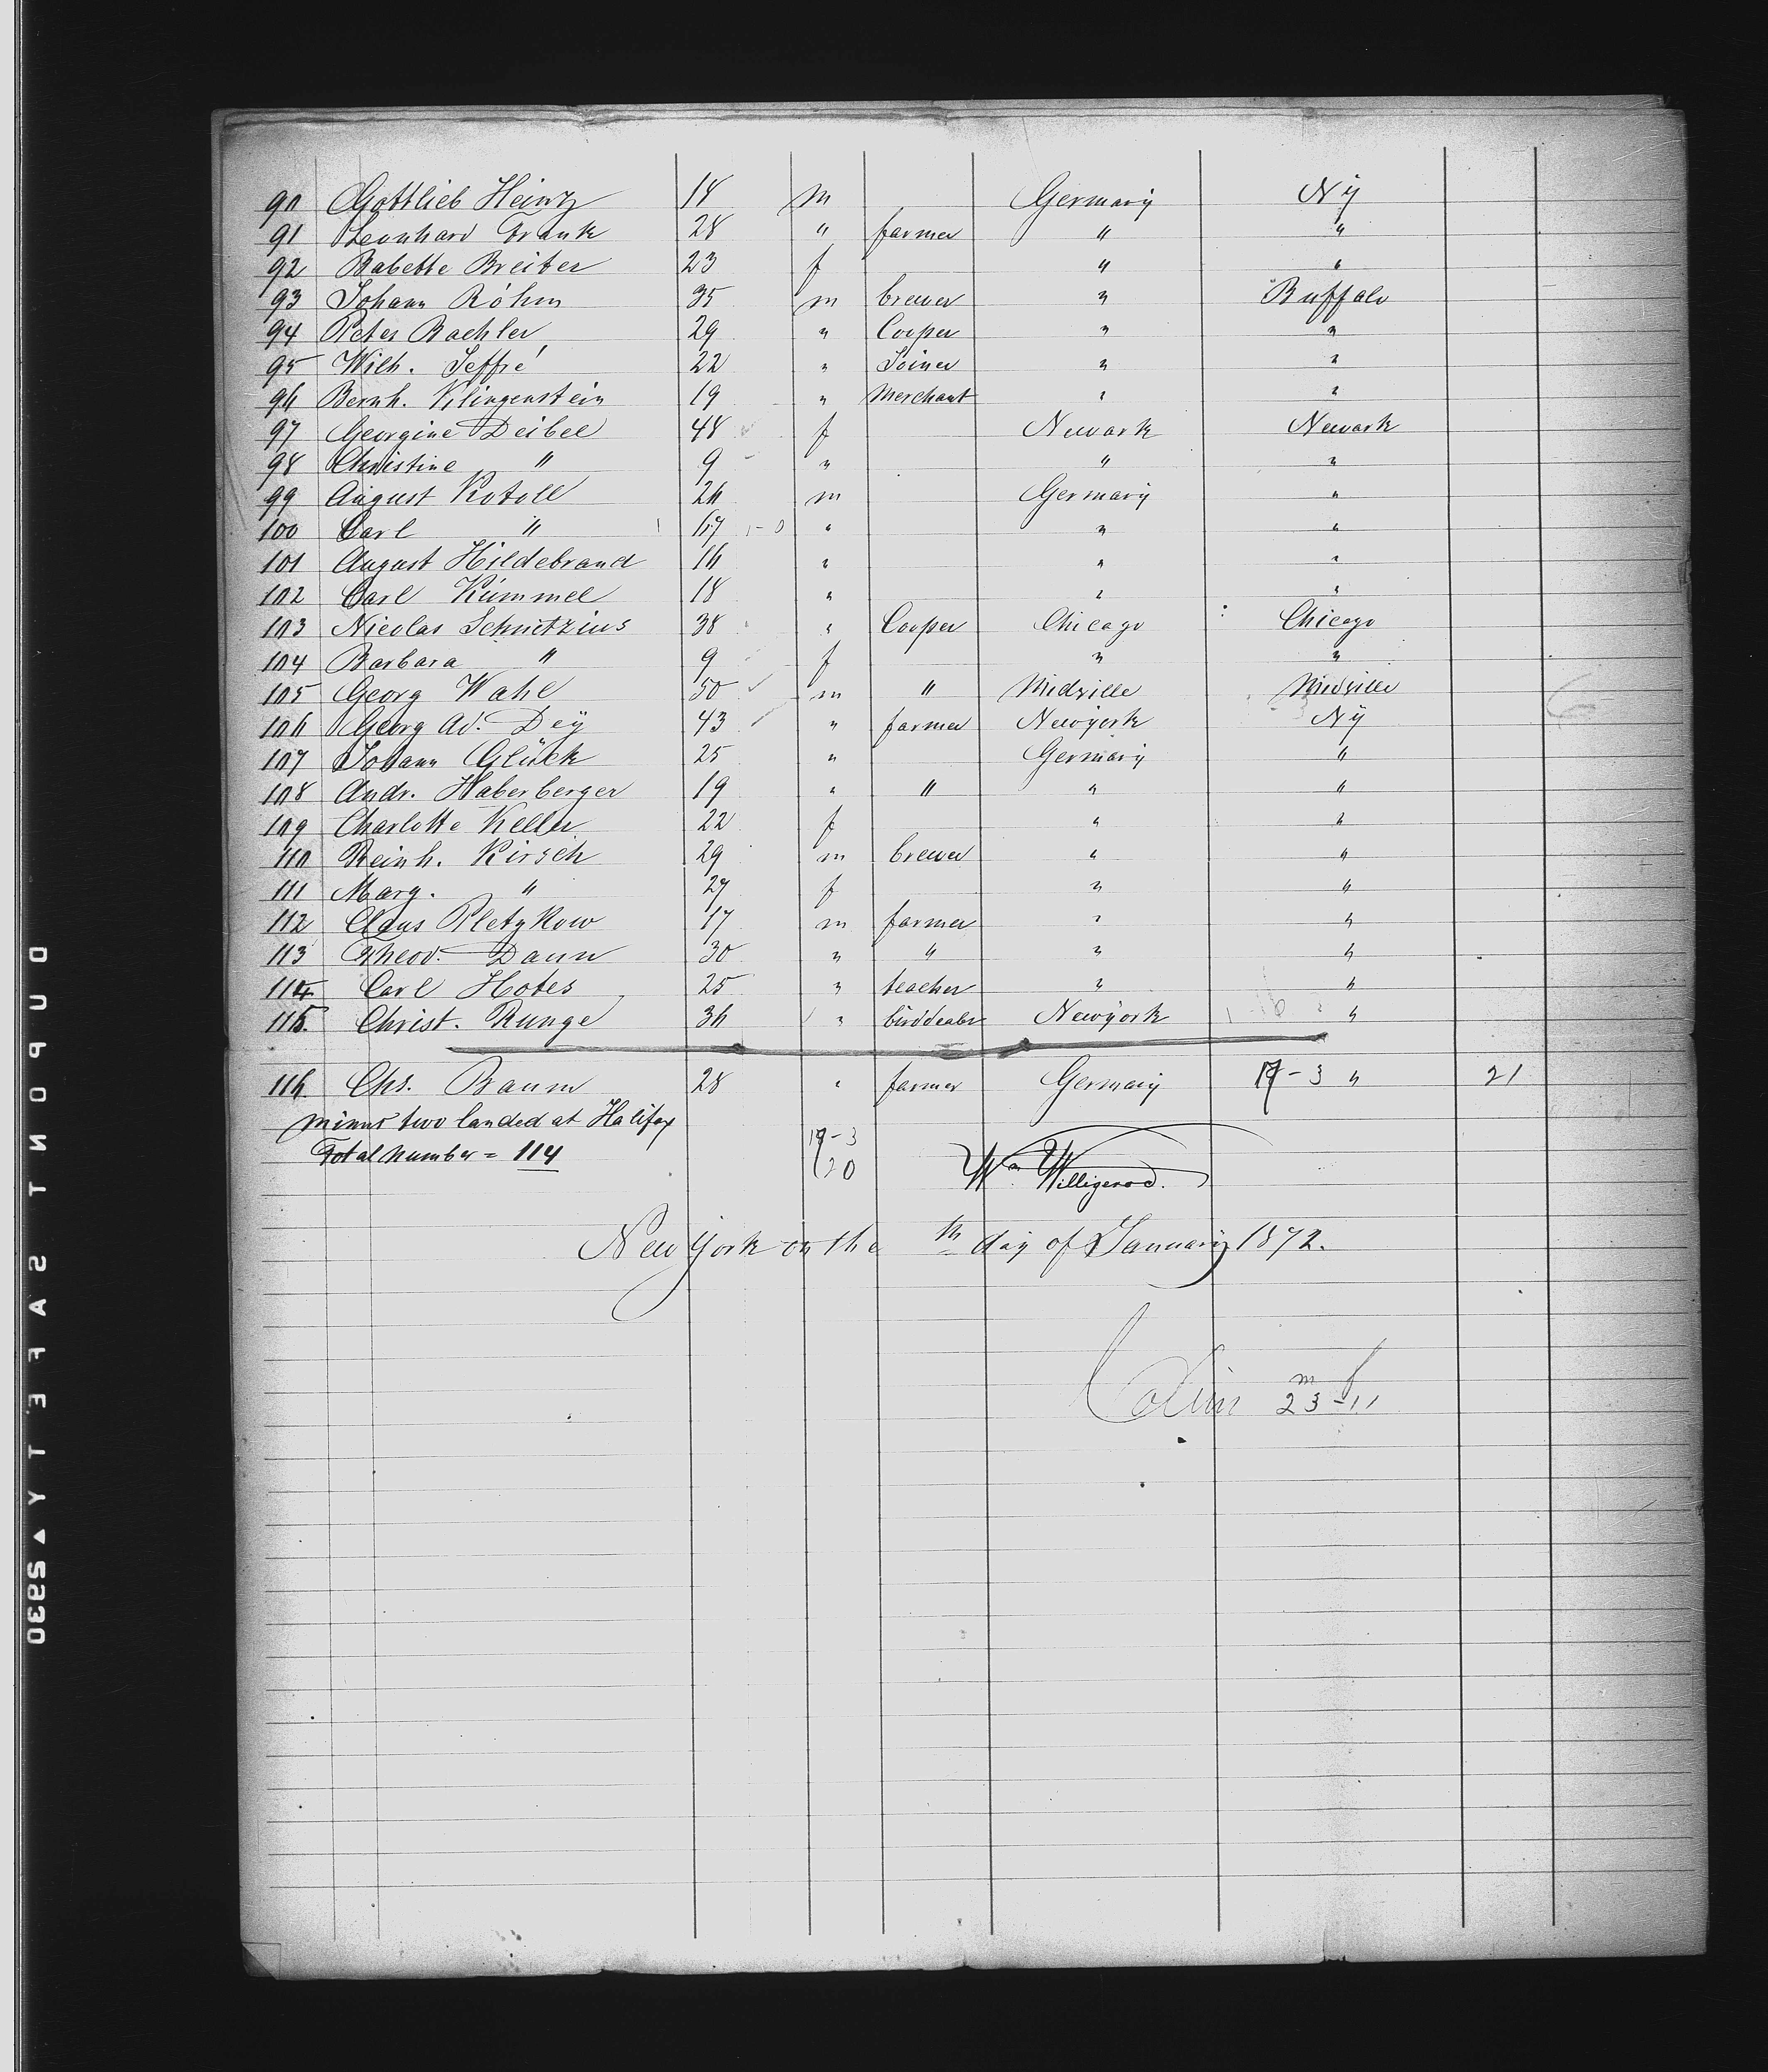 90 Gottlieb Heintz 18 m Germany Ny
91 Leonhard Frank 28 " farmer " "
92 Babette Breiter 23 f " "
93 Johann Röhm 35 m brewer " Buffalo
94 Peter Baehler 29 " Cooper " "
95 Wilh. Jeffré 22 " Joiner " "
96 Bernh. Klingenstein 19 " Merchant " "
97 Georgine Deibel 48 f Newark Newark
98 Christine " 9 " " "
99 August Rotoll 26 m Germany "
100 Carl " " " "
101 August Hildebrand 16 " " "
102 Carl Kümmel 18 " " "
103 Nicolas Schnetzius 38 " Cooper Chicago Chicago
104 Barbara " 9 f " "
105 Georg Wahl 50 m " Midville Midville
106 Georg Ad. Dey 43 " farmer Newyork Ny
107 Johann Glück 25 " Germany "
108 Andr. Haberberger 19 " " " "
109 Charlotte Keller 22 f " "
110 Reinh. Kirsch 29 m brewer " "
111 Marg. " 27 f " "
112 Claus Pletzkow 17 m farmer " "
113 Theod. Daun 30 " " " "
114 Carl Hotes 25 " teacher " "
115. Christ. Runge 36 " birddealer Newyork "
116. Chs. Baum 28 " farmer Germany 17-3 " 21
minus two landed at Halifax
Total number = 114
17-3
20
Wm. Willigerod.
New York on the th day of January 1872.
m f
23-11
DUPONT SAFETY 0392